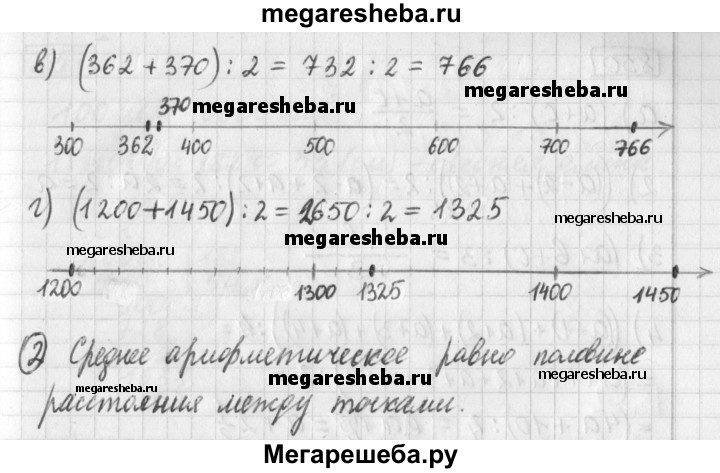 megaresheba.ru
в) (362 + 370) : 2 = 732 : 2 = 766
megaresheba.ru
370 megaresheba.ru
300 362 400 500 600 700 766
г) (1200+1450) : 2 = 2650 : 2 = 1325
megaresheba.ru
megaresheba.ru
megaresheba.ru
1200 1300 1325 1400 1450
2 Среднее арифметическое равно половине
megaresheba.ru
megaresheba.ru
megaresheba.ru
расстояния между точками.
Мегарешеба.ру